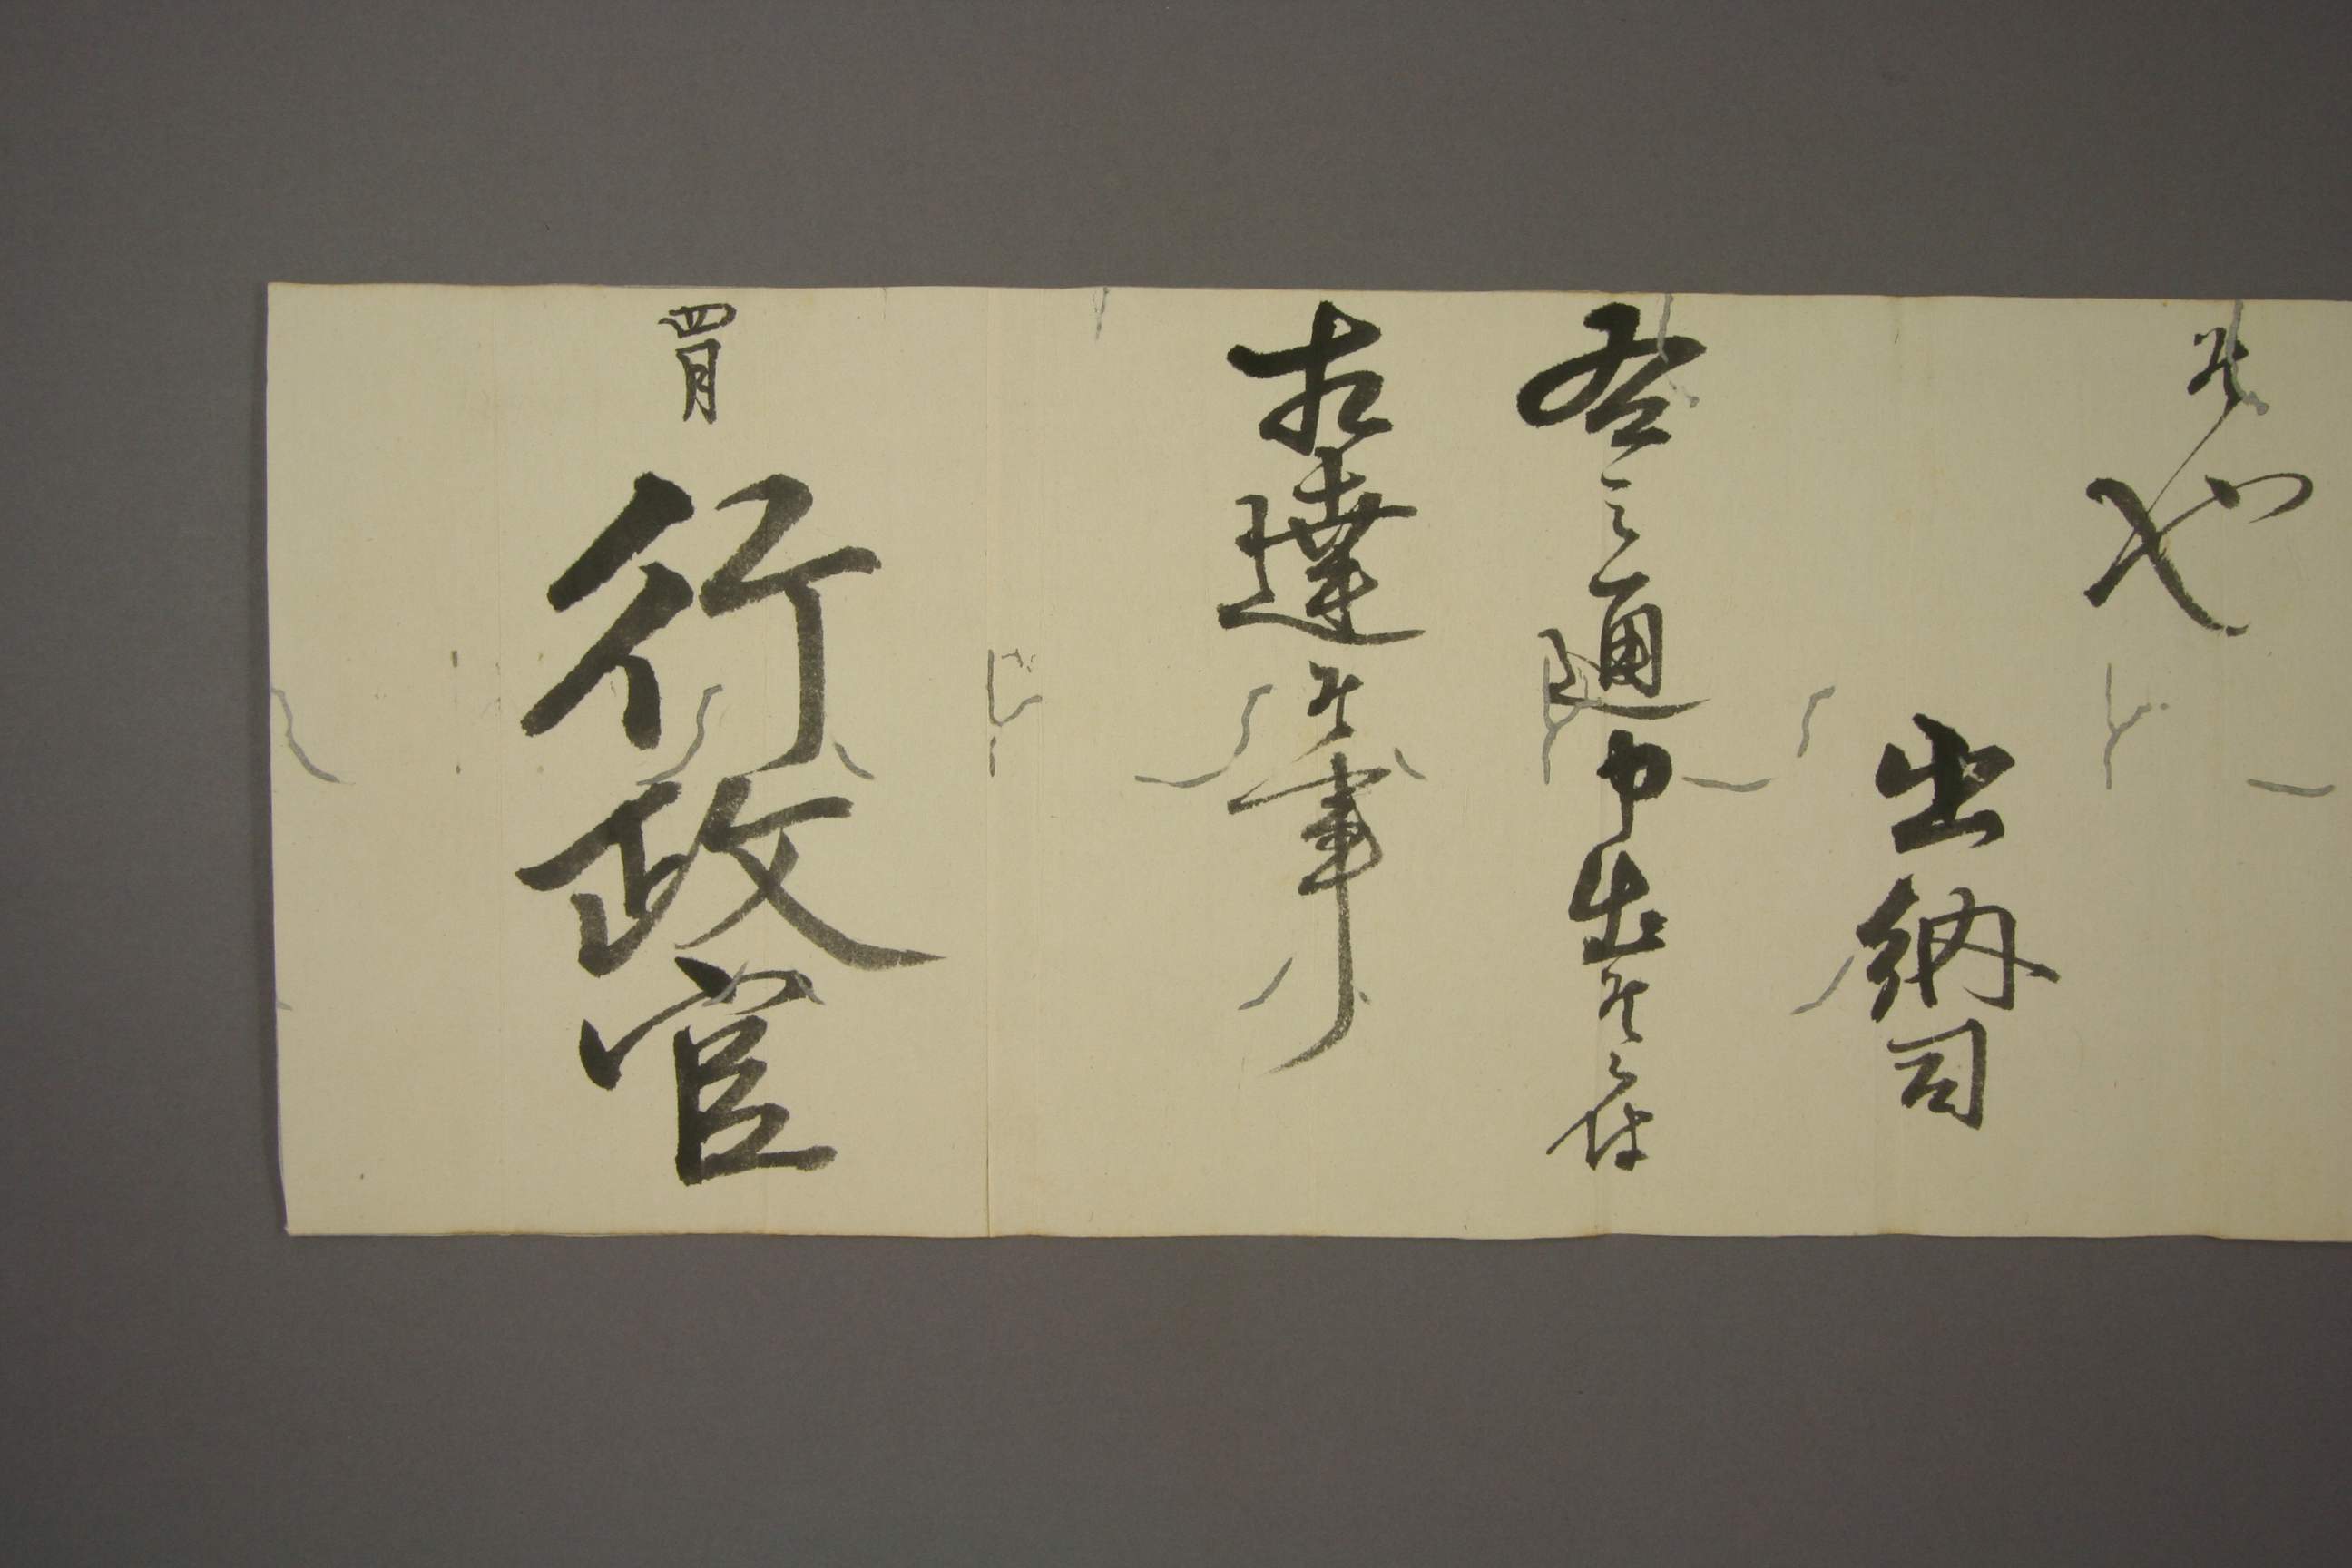 候也
出納司
右之通申出候ニ付
相達候事
四月
行政官